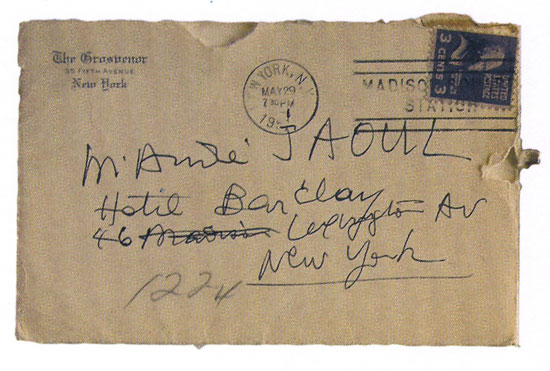 The Grosvenor
35 FIFTH AVENUE
New York
NEW YORK, N.Y.
MAY 29
7 30 PM
MADISON SQUARE
STATION
3 CENTS 3
UNITED
STATES
POSTAGE
Mr André JAOUL
Hotel Barclay
46 Madison Lexington AV
New York
1224